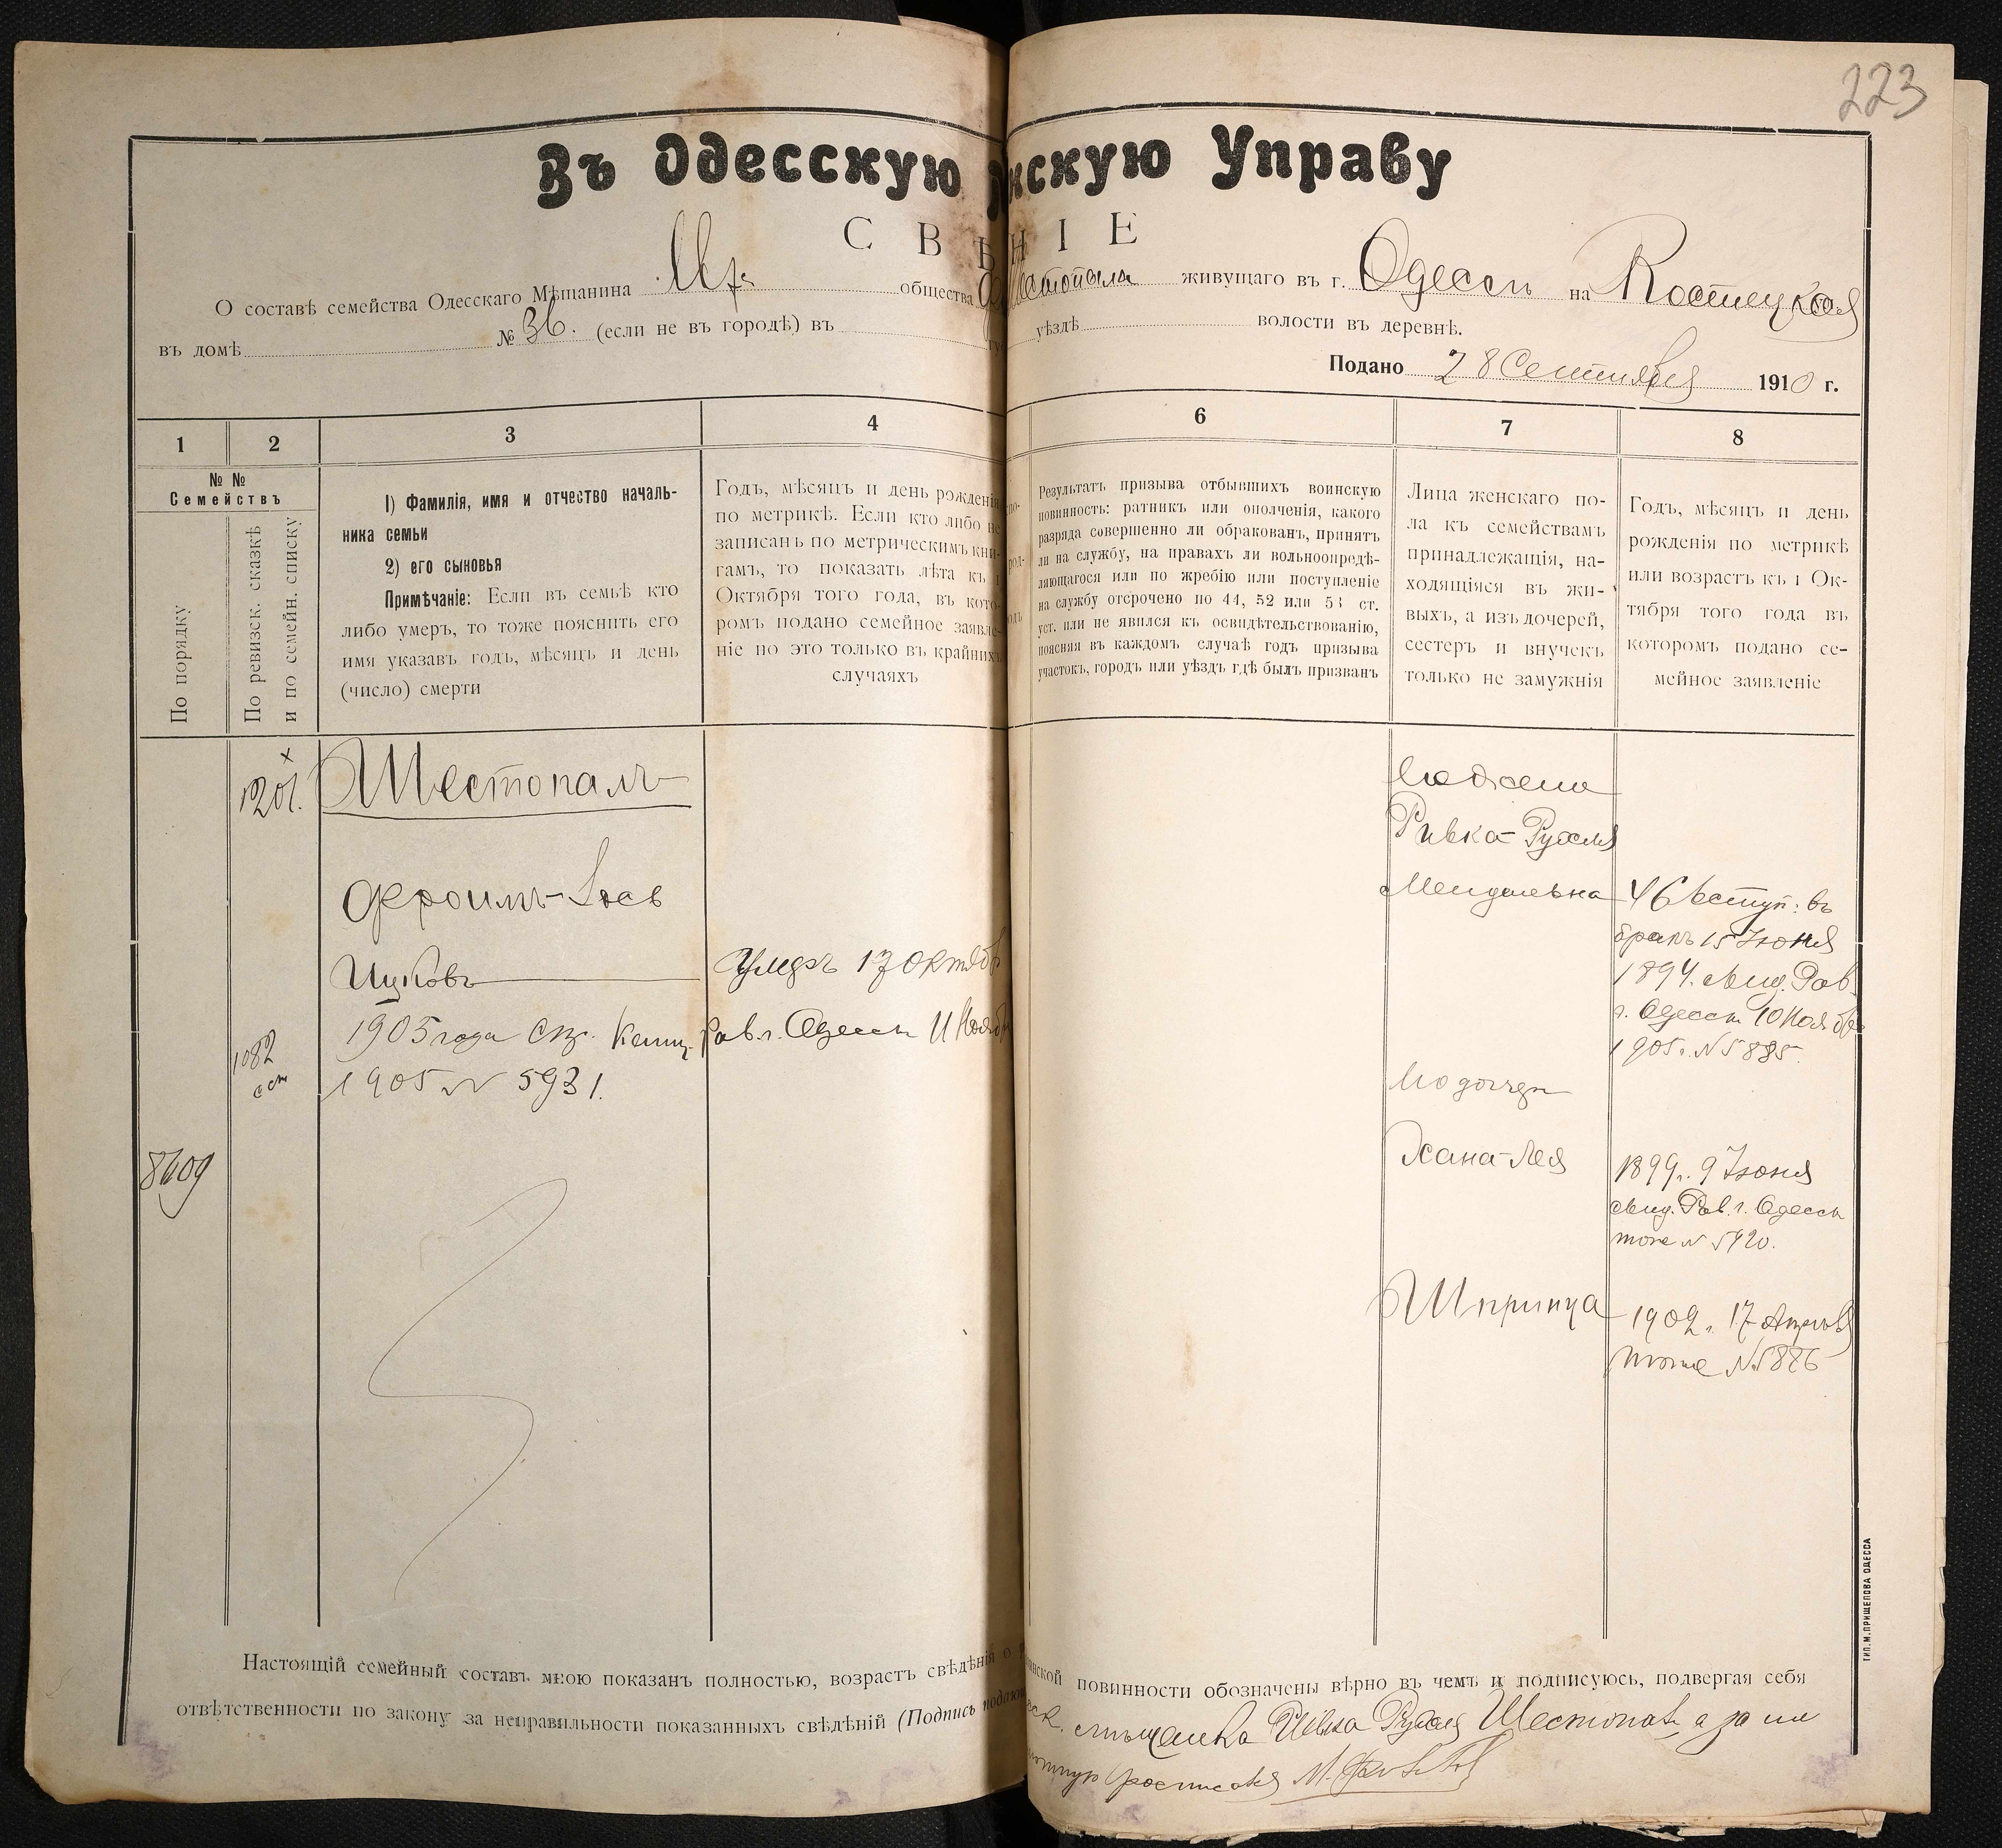 223
Въ Одесскую нскую Управу
С В Ѣ Н І Е
О составѣ семейства Одесскаго Мѣщанина общества живущаго въ г. Одессѣ на Костецкой
въ домѣ № 36. (если не въ городѣ) въ уѣздѣ волости въ деревнѣ.
Подано 28 Сентября 1910 г.
1 2 3 4 6 7 8
№ №
Семействъ
По порядку
По ревизск. сказкѣ
и по семейн. списку
1) Фамилія, имя и отчество началь-
ника семьи
2) его сыновья
Примѣчаніе: Если въ семьѣ кто
либо умеръ, то тоже пояснить его
имя указавъ годъ, мѣсяцъ и день
(число) смерти
Годъ, мѣсяцъ и день рожденія
по метрикѣ. Если кто либо не
записанъ по метрическимъ кни-
гамъ, то показать лѣта къ 1
Октября того года, въ кото-
ромъ подано семейное заявле-
ніе но это только въ крайнихъ
случаяхъ
Результатъ призыва отбывшихъ воинскую
повинность: ратникъ или ополченія, какого
разряда совершенно ли обракованъ, принятъ
ли на службу, на правахъ ли вольноопредѣ-
ляющагося или по жребію или поступленіе
на службу отсрочено по 44, 52 или 53 ст.
уст. или не явился къ освидѣтельствованію,
поясняя въ каждомъ случаѣ годъ призыва
участокъ, городъ или уѣздъ гдѣ былъ призванъ
Лица женскаго по-
ла къ семействамъ
принадлежащія, на-
ходящіяся въ жи-
выхъ, а изъ дочерей,
сестеръ и внучекъ
только не замужнія
Годъ, мѣсяцъ и день
рожденія по метрикѣ
или возрастъ къ 1 Ок-
тября того года въ
которомъ подано се-
мейное заявленіе
1201.
Шестопалъ
Фроимъ-Іосъ
Ицковъ
Умеръ 17 Октяб
1905 года Рав. г. Одессы 11 Нояб
1905 № 5931.
1082
8609
Его жена
Ривка-Рухля
Менделевна
46 вступ: въ
бракъ 15 Іюня
1894. Рав.
г. Одессы 10 Нояб
1905 г. № 5885.
Его дочери
Хана-Лея
1899 г. 9 Іюня
Рав. г. Одессы
тоже № 5420.
Шпринца
1902 г. 17 Апрѣля
тоже № 5886
Настоящій семейный составъ мною показанъ полностью, возрастъ свѣдѣнія о инской повинности обозначены вѣрно въ чемъ и подписуюсь, подвергая себя
отвѣтственности по закону за неправильности показанныхъ свѣдѣній (Подпись подаю мѣщанка Ривка Рухля Шестопалъ, а за не
росписался
ТИП. М. ПРИЩЕПОВА ОДЕССА